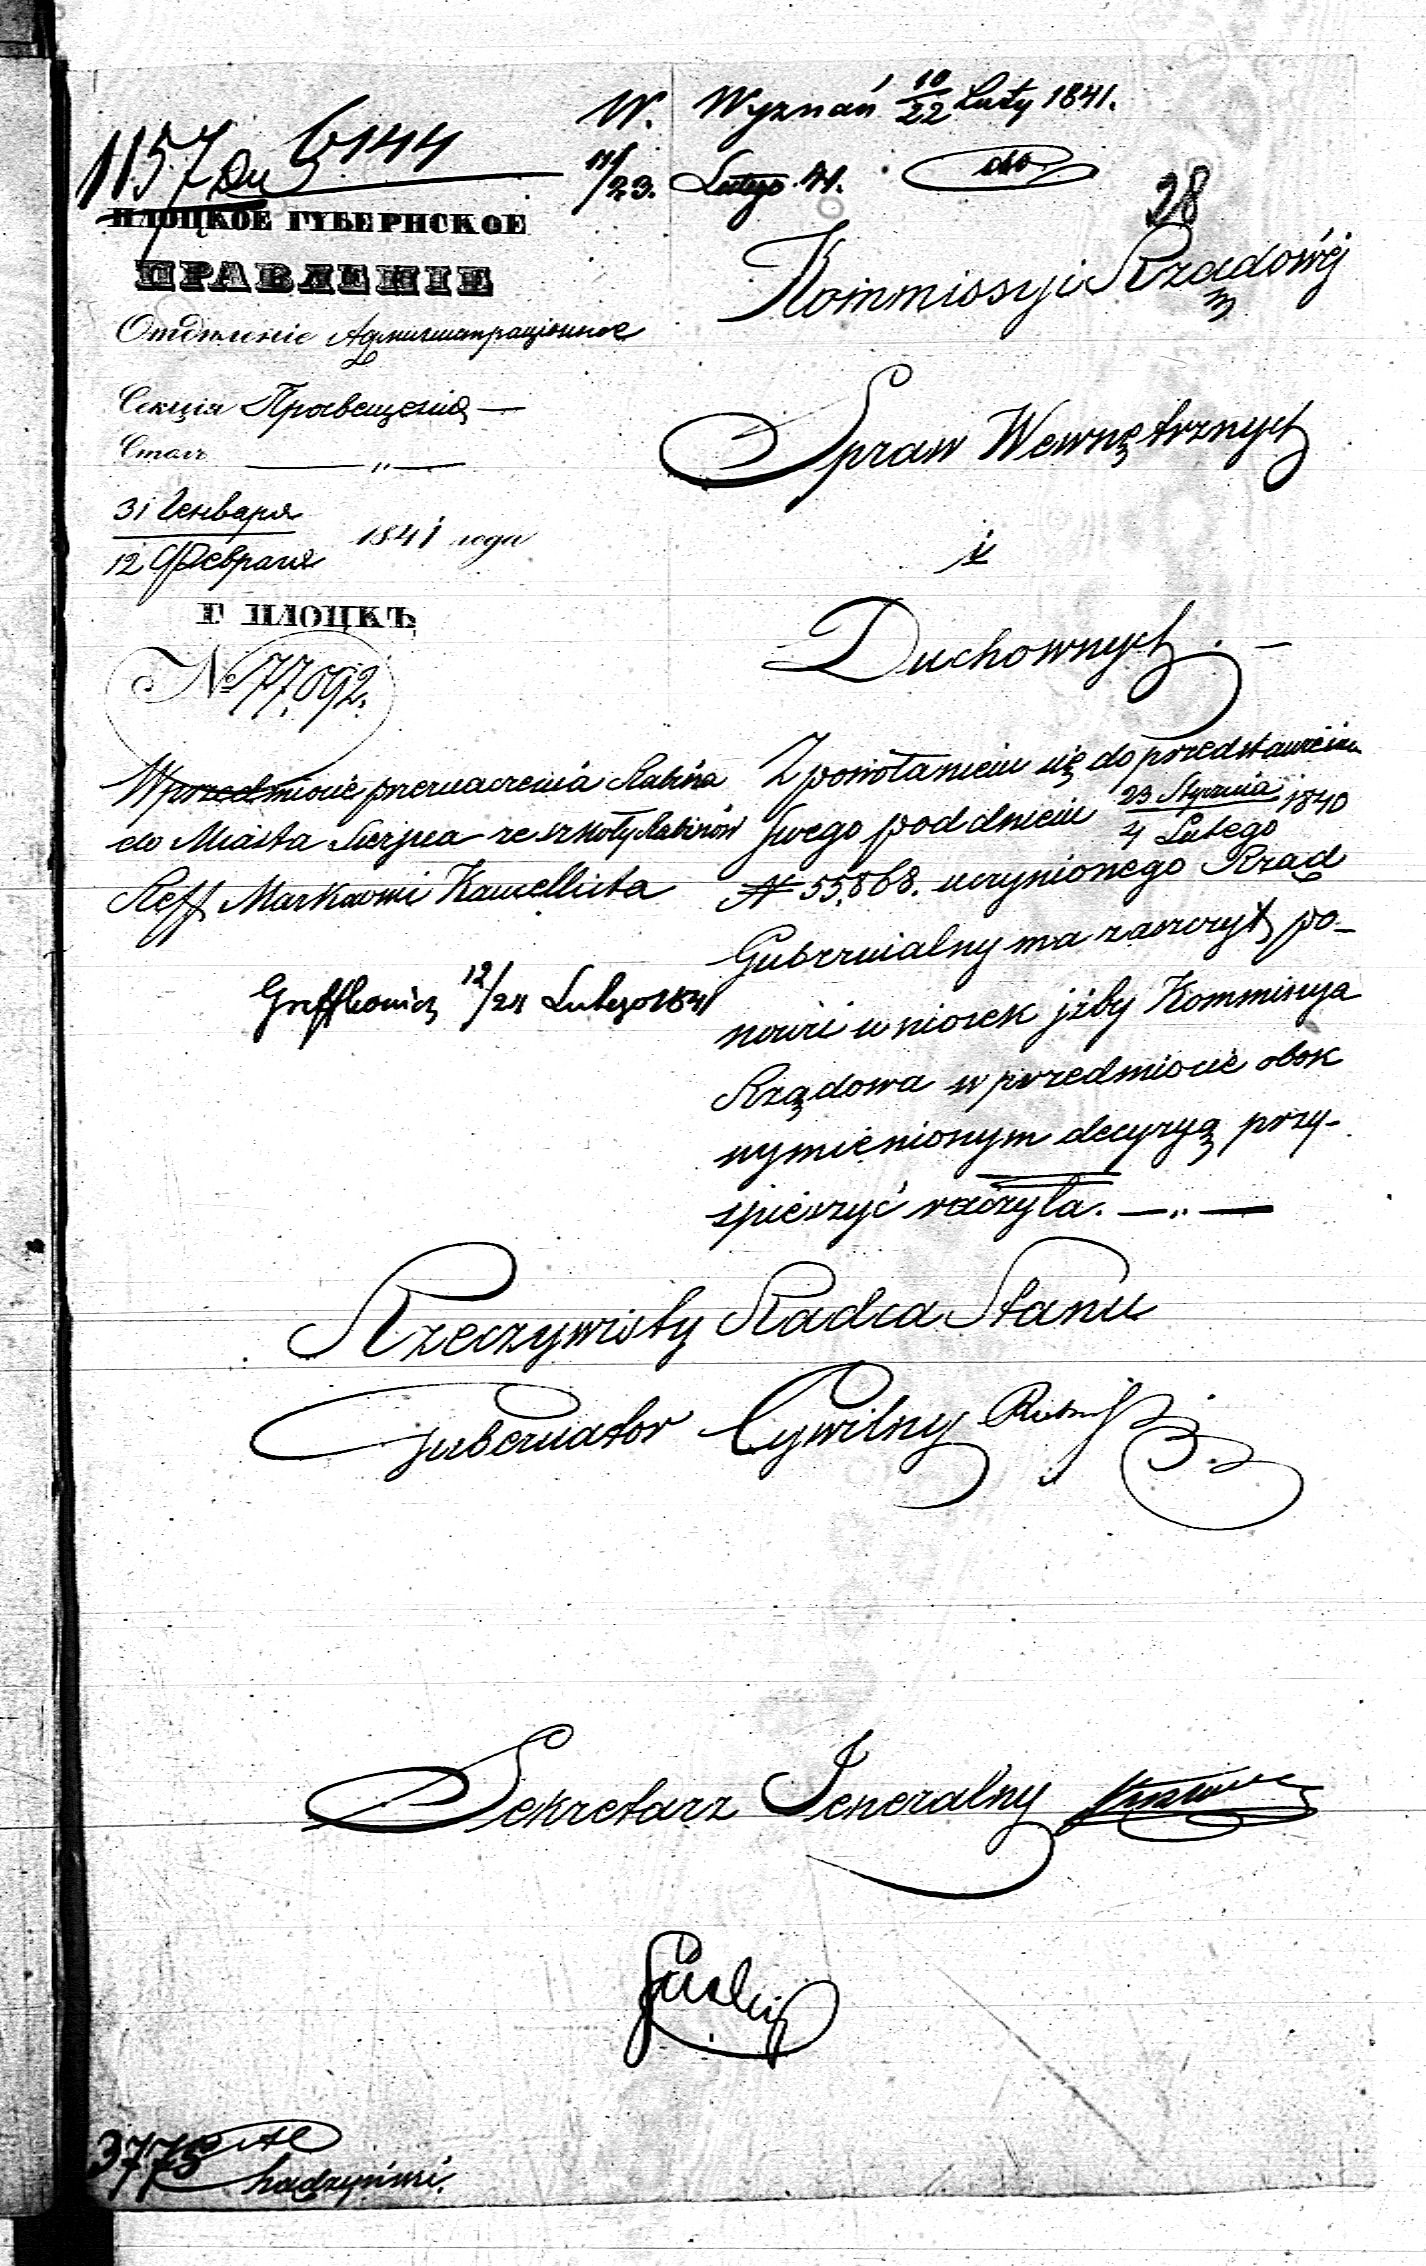 W. Wyznań 10/22 Luty 1841.
1157 6144
11/23. Lutego 41.
28
ПЛОЦКОЕ ГУБЕРНСКОЕ
ПРАВЛЕНІЕ
Отдѣленіе Администраціонное
Секція Просвещенія —
Столъ — „ —
31 Генваря
12 Февраля 1841 года
Г ПЛОЦКЪ
№ 77,092.
Kommissyi Rządowéj
Spraw Wewnętrznych
i
Duchownych. —
W przedmiocie przeznaczenia Rabina
do Miasta Sierpca ze szkoły Rabinów
Reff Markowi
12/24 Lutego 1841
Z powołaniem się do przedstawienia
swego pod dniem 23 Stycznia / 4 Lutego 1840
N 55,868. uczynionego Rząd
Gubernialny ma zaszczyt po-
nowić wniosek jżby Kommissya
Rządowa w przedmiocie obok
wymienionym decyzyą przy-
spieszyć raczyła. — „ —
Rzeczywisty Radca Stanu
Gubernator Cywilny
Sekretarz Jeneralny
3775